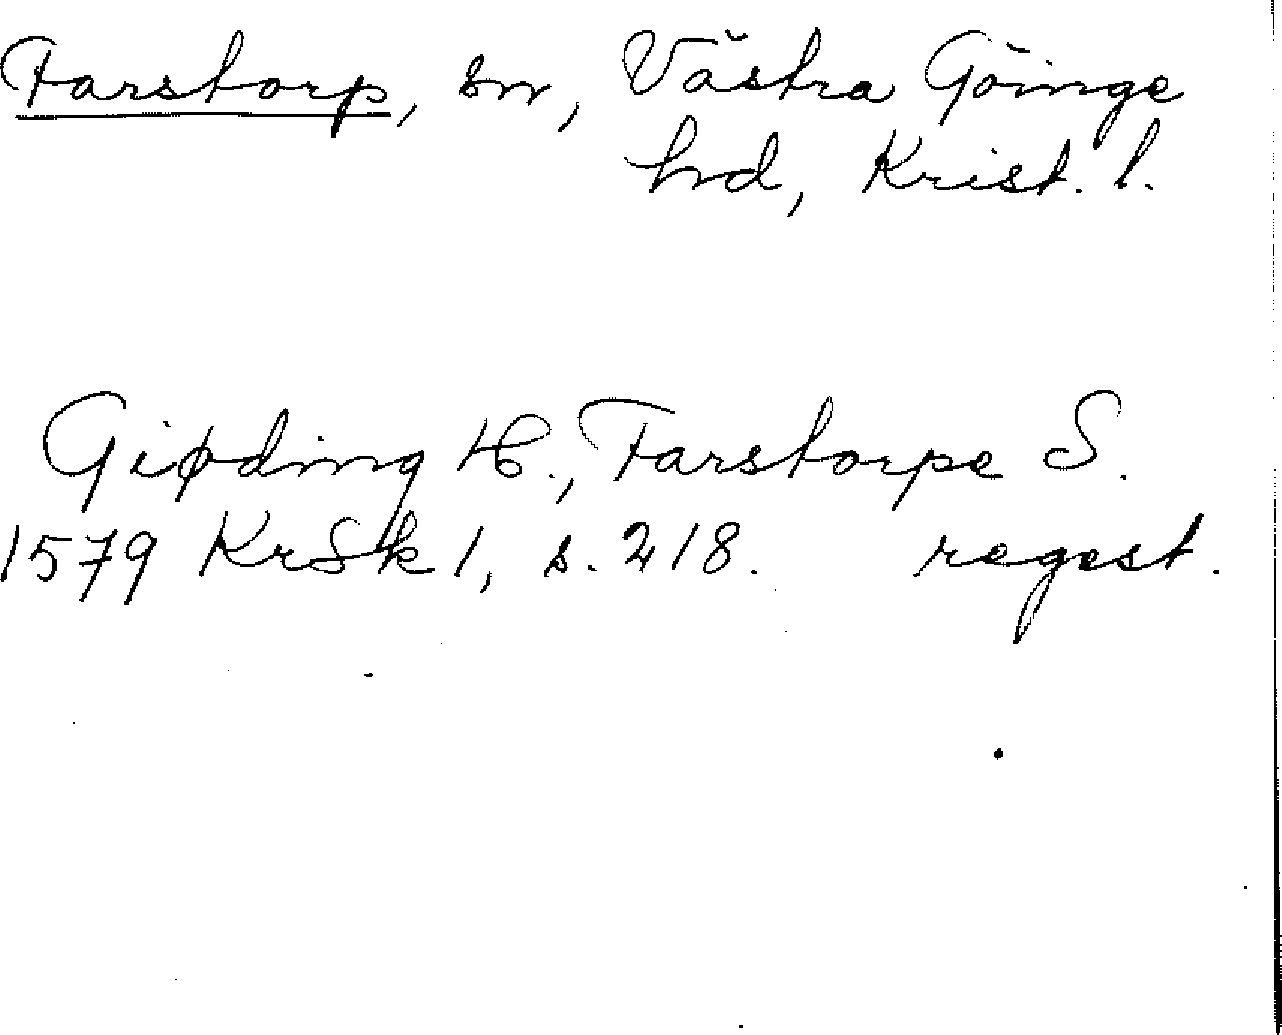 Farstorp, sn, Västra Göinge
hd, Krist. l.
Giøding H., Farstorpe S.
1579 KrSk 1, s. 218. regest.